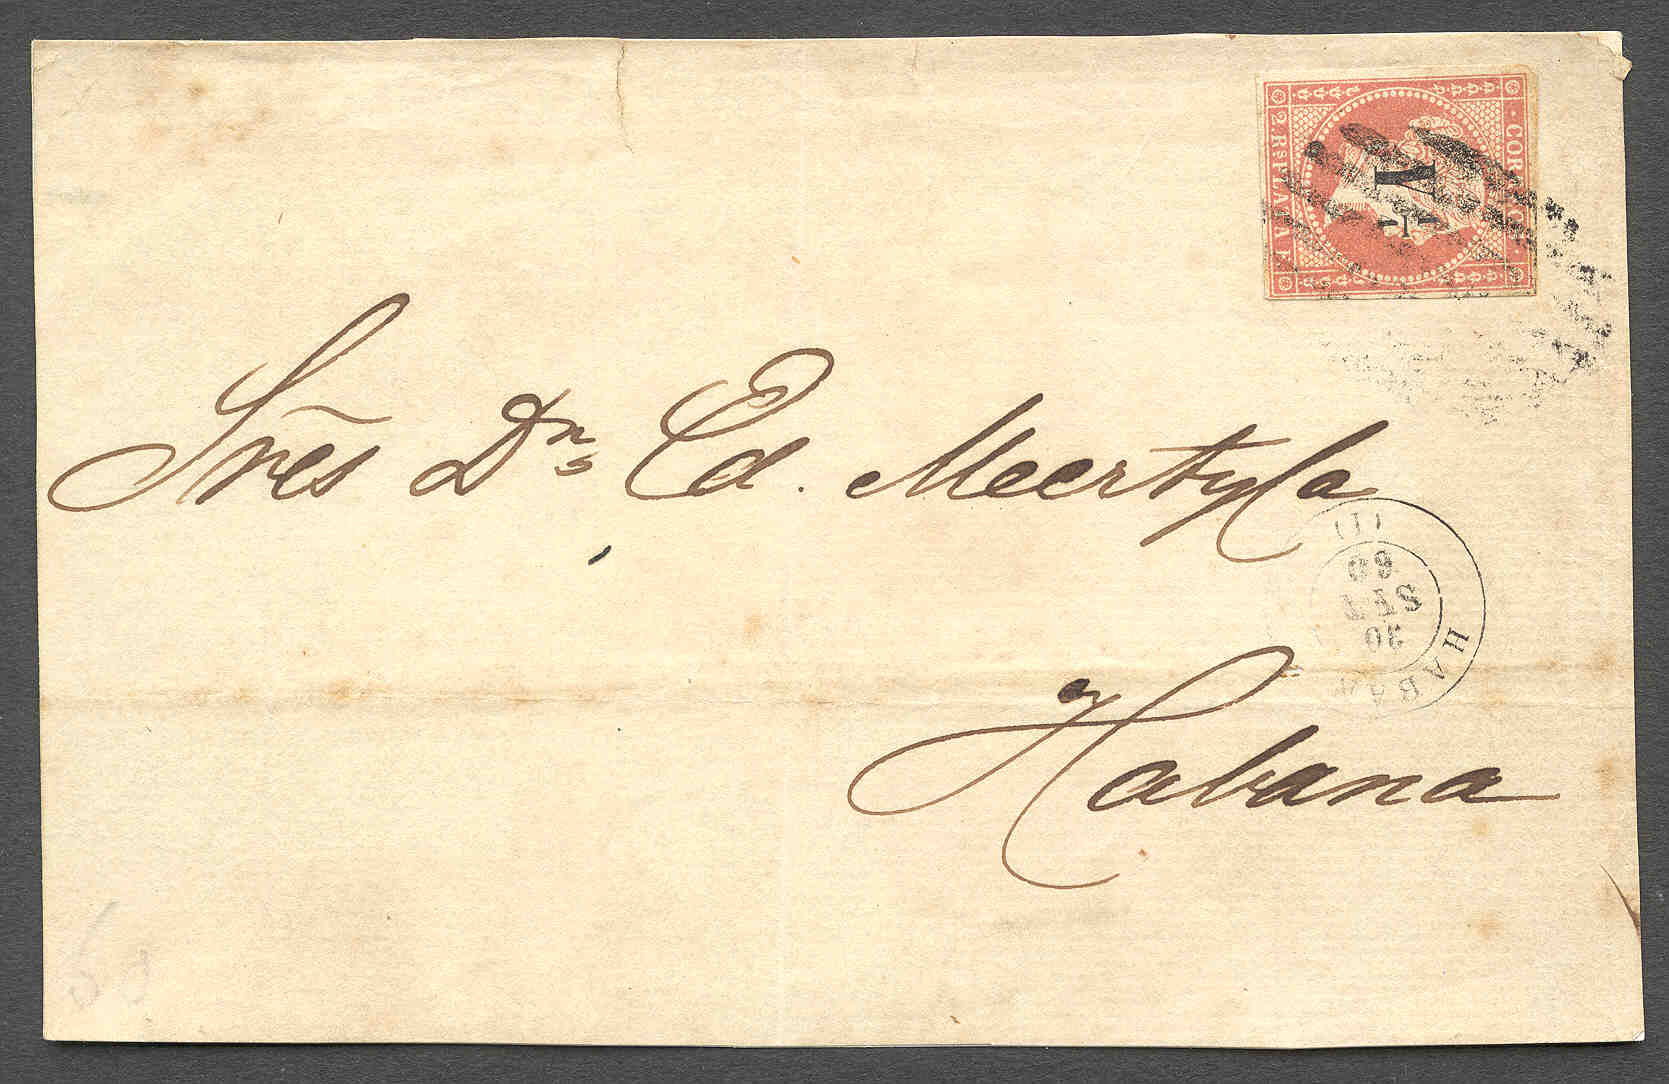 CORREOS
Y ¼
2 Rs PLATA F.
Sres Dns Ed. Meertyla
Habana
HABANA
30
SET
60
(1)